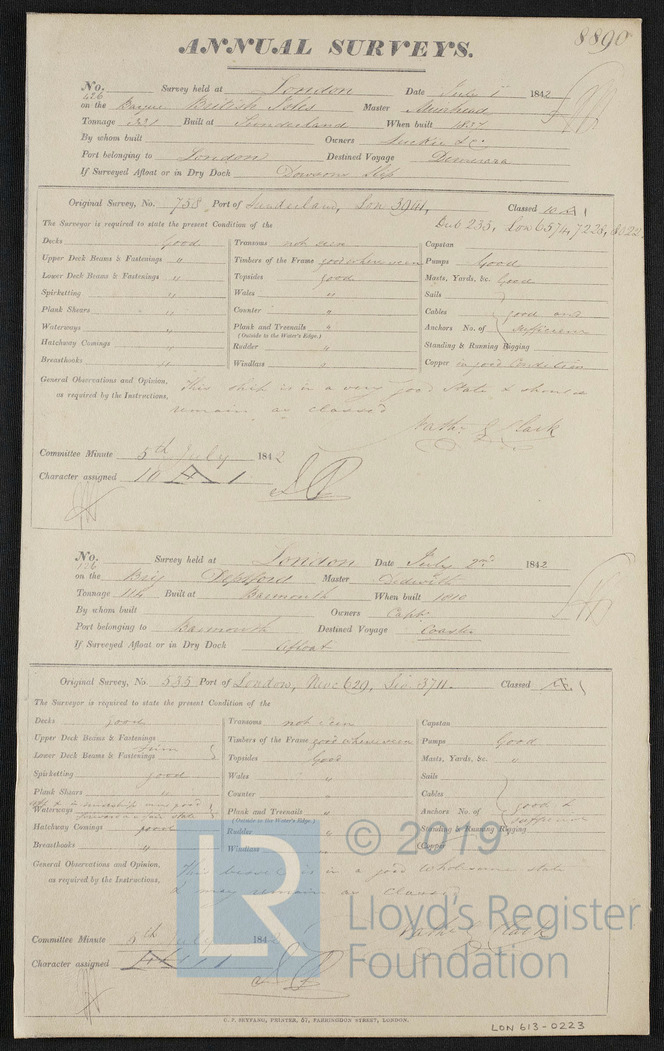 8890
ANNUAL SURVEYS.
No. 426 Survey held at London Date July 1 1842
on the Barque British Isles Master Muirhead
Tonnage 331 Built at Sunderland When built 1837
By whom built Owners
Port belonging to London Destined Voyage Demerara
If Surveyed Afloat or in Dry Dock Dowsons Slip
Original Survey, No. 758 Port of Sunderland, Lon 3941, Classed 10 A 1
The Surveyor is required to state the present Condition of the Dub 235, Lon 6574, 7223,
Decks good Transoms not seen Capstan
Upper Deck Beams & Fastenings " Timbers of the Frame good where seen Pumps Good
Lower Deck Beams & Fastenings " Topsides good Masts, Yards, &c. Good
Spirketting " Wales " Sails
Plank Shears " Counter " Cables good and
Waterways " Plank and Treenails " Anchors No. of sufficient
(Outside to the Water's Edge.)
Hatchway Comings " Rudder " Standing & Running Rigging
Breasthooks " Windlass " Copper in good Condition
General Observations and Opinion, This ship is in a very good State & should
as required by the Instructions, remain as classed
Nathl Clark
Committee Minute 5th July 1842
Character assigned 10 A 1
No. 126 Survey held at London Date July 2nd 1842
on the Brig Deptford Master
Tonnage 116 Built at Barmouth When built 1810
By whom built Owners Capt
Port belonging to Barmouth Destined Voyage Coaster
If Surveyed Afloat or in Dry Dock Afloat
Original Survey, No. 535 Port of London, Newc 629, 3711. Classed
The Surveyor is required to state the present Condition of the
Decks good Transoms not seen Capstan
Upper Deck Beams & Fastenings Timbers of the Frame good where seen Pumps Good
Lower Deck Beams & Fastenings Topsides Good Masts, Yards, &c. "
Spirketting good Wales " Sails
Plank Shears " Counter " Cables
Waterways Plank and Treenails " Anchors No. of good & sufficient
(Outside to the Water's Edge.)
Hatchway Comings good Rudder " Standing & Running Rigging
Breasthooks " Windlass " Copper
General Observations and Opinion, This vessel is in a good wholesome state
as required by the Instructions, & may remain as Classed
Nathl Clark
Committee Minute 5th July 1842
Character assigned
© 2019
LR
Lloyd's Register
Foundation
C. F. SEYFANG, PRINTER, 57, FARRINGDON STREET, LONDON.
LON 613-0223